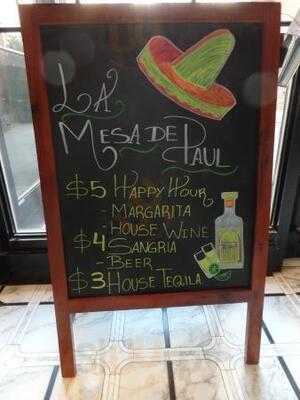 La
Mesa de Paul
$5 Happy Hour
- Margarita
- House Wine
$4 Sangria
- Beer
$3 House Tequila